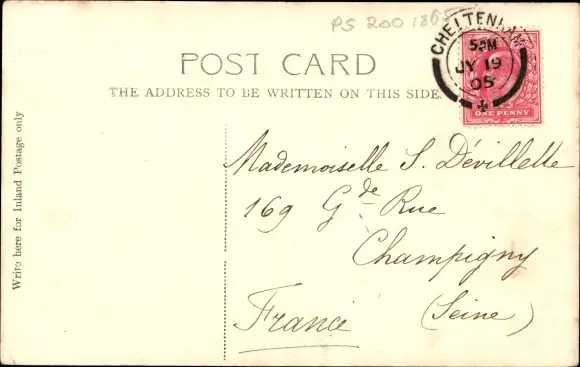 PS 200 1865
CHELTENHAM
5 PM
JY 19
05
ONE PENNY
POST CARD
THE ADDRESS TO BE WRITTEN ON THIS SIDE.
Write here for Inland Postage only
Mademoiselle S. Dévillette
169 Gde Rue
Champigny
(Seine)
France